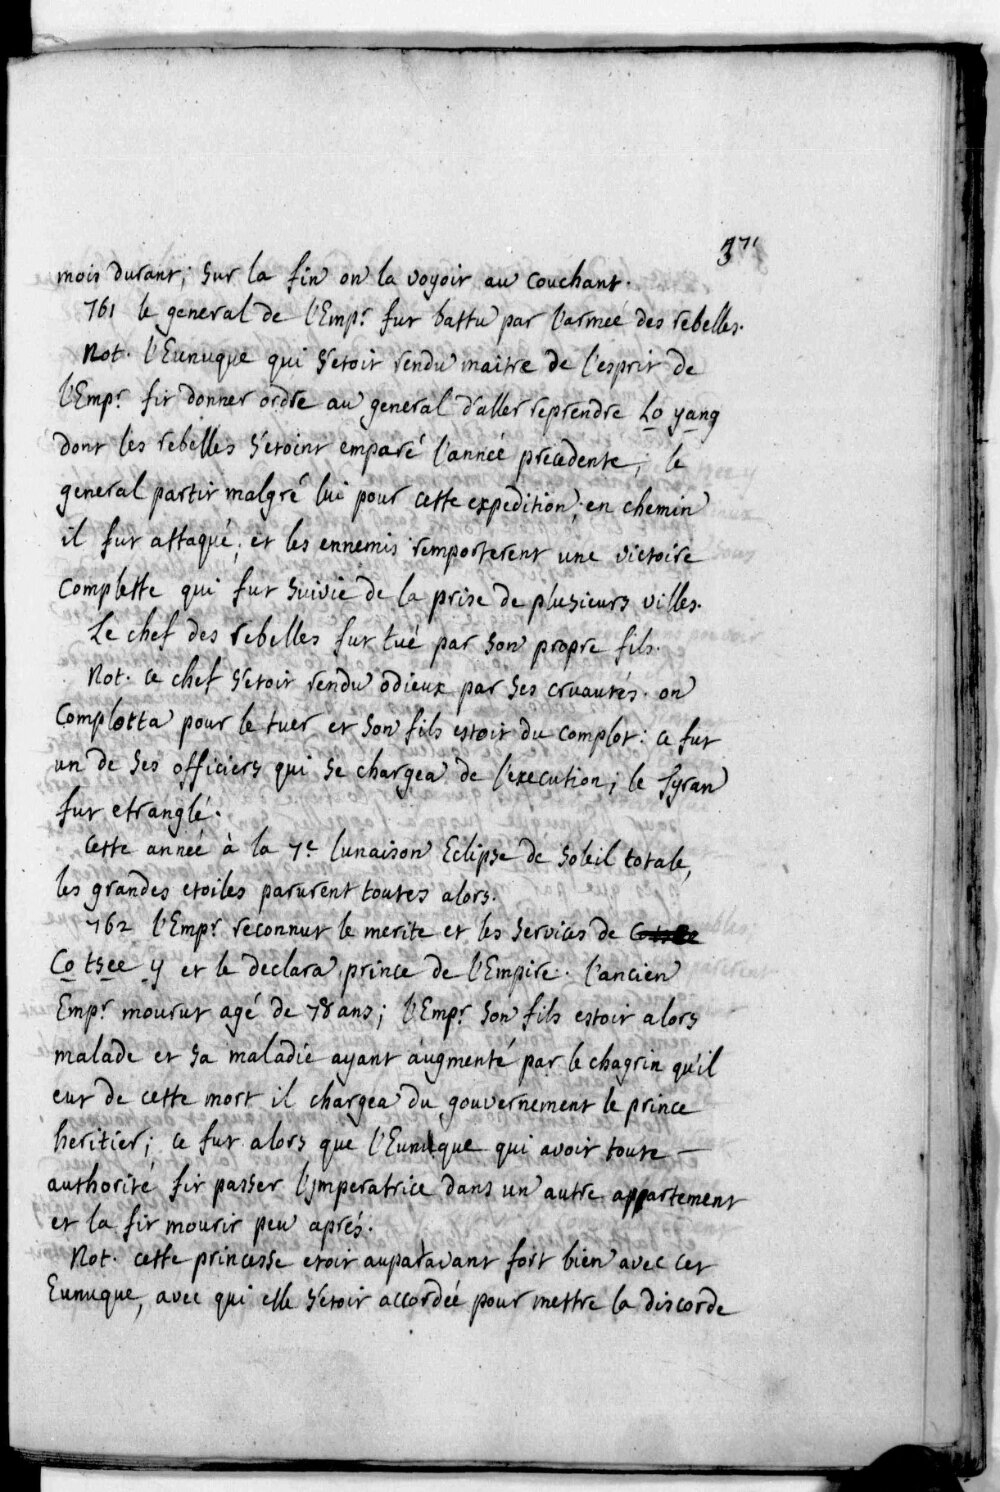 371
mois durant; sur la fin on la voyoit au couchant.
761 le general de l'Empr. fut battu par l'armée des rebelles.
Not. l'Eunuque qui s'etoit rendu maitre de l'esprit de
l'Empr. fit donner ordre au general d'aller reprendre Lo yang
dont les rebelles s'etoint emparé l'année precedente; le
general partit malgré lui pour cette expedition; en chemin
il fut attaqué; et les ennemis remporterent une victoire
complette qui fut suivie de la prise de plusieurs villes.
Le chef des rebelles fut tué par son propre fils.
Not. ce chef s'etoit rendu odieux par ses cruautés. on
complotta pour le tuer et son fils estoit du complot: ce fut
un de ses officiers qui se chargea de l'execution; le Tyran
fut etranglé.
cette année à la 7e lunaison Eclipse de soleil totale,
les grandes etoiles parurent toutes alors.
762 l'Empr. reconnut le merite et les services de
Co tsee y et le declara prince de l'Empire. l'ancien
Empr. mourut agé de 78 ans; l'Empr. son fils estoit alors
malade et sa maladie ayant augmenté par le chagrin qu'il
eut de cette mort il chargea du gouvernement le prince
heritier; ce fut alors que l'Eunuque qui avoit toute
authorité fit passer l'jmperatrice dans un autre appartement
et la fit mourir peu aprés.
Not. cette princesse etoit auparavant fort bien avec cet
Eunuque, avec qui elle s'etoit accordée pour mettre la discorde